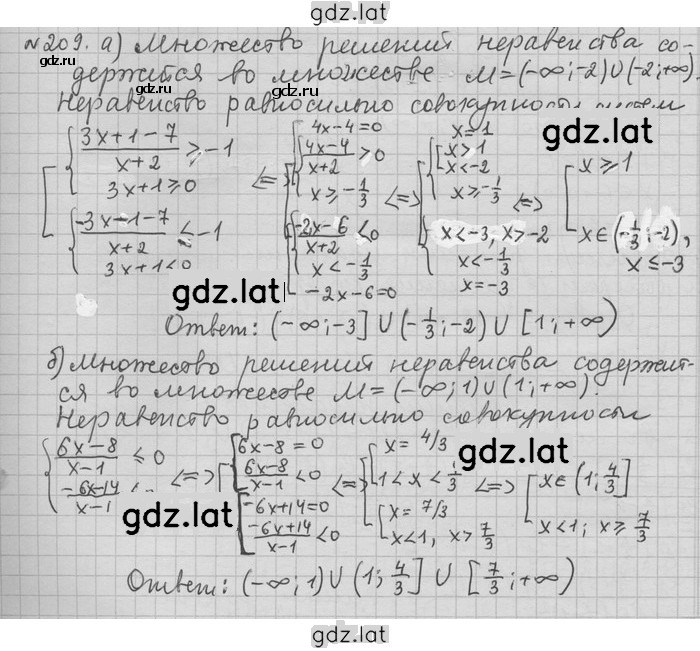 gdz.lat
№209. а) Множество решений неравенства со-
держится во множестве M=(-∞;-2)∪(-2;+∞).
Неравенство равносильно совокупности систем
[ { (3x+1-7)/(x+2) ≥ -1 { 3x+1≥0 { (-3x-1-7)/(x+2) ≤ -1 { 3x+1<0
<=> [ { 4x-4=0 { (4x-4)/(x+2) > 0 { x≥-1/3 { (-2x-6)/(x+2) < 0 { x<-1/3 -2x-6=0
<=> [ { x=1 [ x>1 x<-2 { x≥-1/3 { x<-3, x>-2 x<-1/3 x=-3
<=> [ x≥1 x∈(-1/3;-2), x≤-3
gdz.lat
gdz.lat
Ответ: (-∞;-3]∪(-1/3;-2)∪[1;+∞)
б) Множество решений неравенства содержит-
ся во множестве M=(-∞;1)∪(1;+∞).
Неравенство равносильно совокупности
{ (6x-8)/(x-1) ≤ 0 (-6x-14)/(x-1)
<=> [ [ 6x-8=0 (6x-8)/(x-1) < 0 [ -6x+14=0 (-6x+14)/(x-1) < 0
<=> [ [ x=4/3 1<x<4/3 [ x=7/3 x<1, x>7/3
<=> [ x∈(1;4/3] x<1; x≥7/3
gdz.lat
gdz.lat
Ответ: (-∞;1)∪(1;4/3]∪[7/3;+∞)
gdz.lat